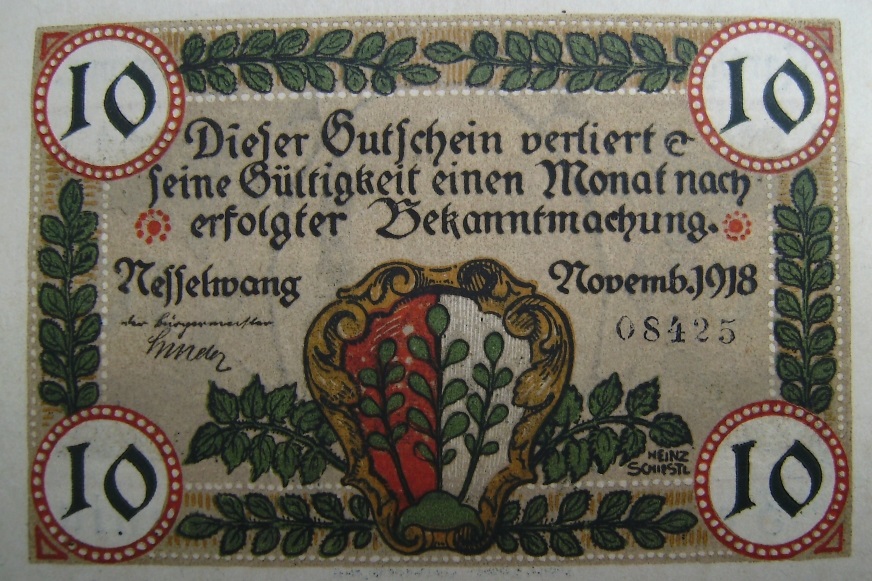 10 10
Dieser Gutschein verliert
seine Gültigkeit einen Monat nach
erfolgter Bekanntmachung.
Nesselwang Novemb. 1918
der Bürgermeister
08425
HEINZ
SCHIESTL
10 10